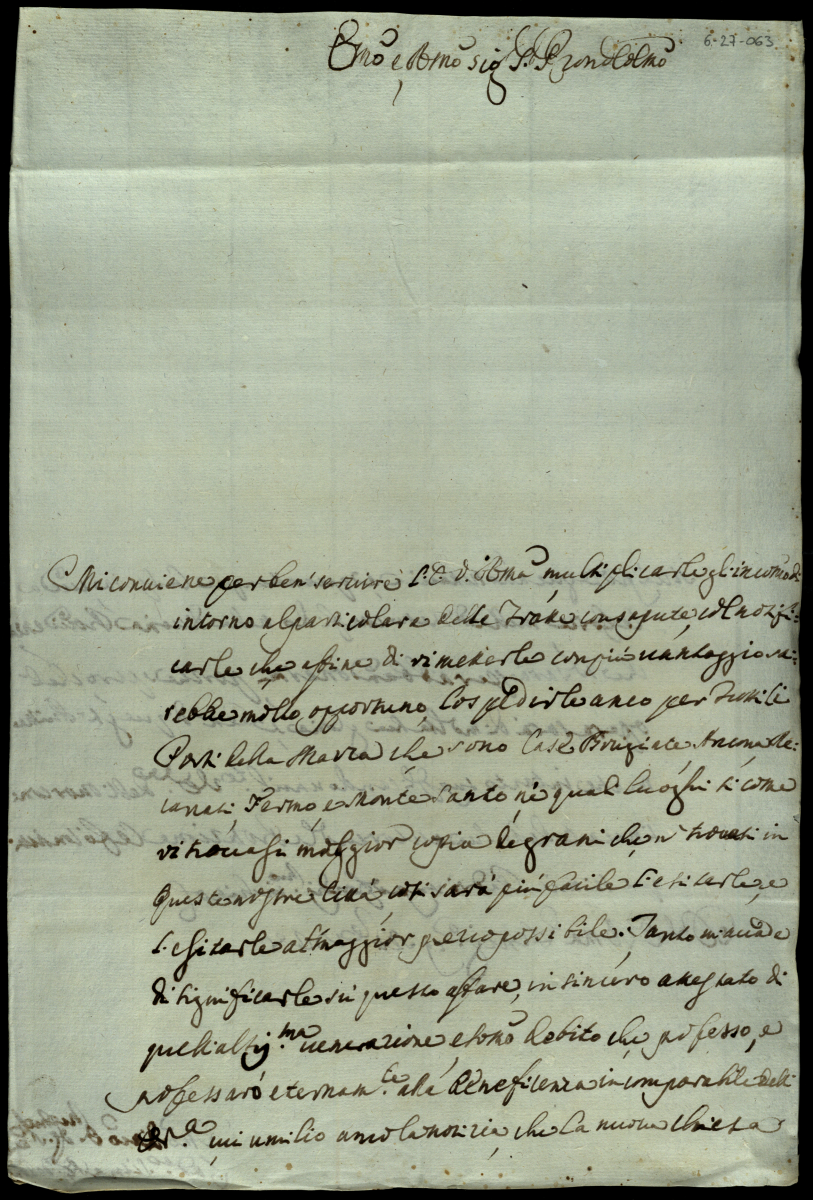 6-27-063
Emo e Rmo Sig.r P.rone Colmo
Mi conviene per ben servire l'E. V. Rma multiplicarle gli incomodi
intorno al particolare delle Tratte consapute col notifi-
carle che affine di rimeterle con più vantaggio sa-
rebbe molto opportuno spedirle anco per tutti li
Porti della Marca che sono Case Brugiate Ancona Re-
canati, Fermo, e Monte Santo ne quali luoghi si come
vi trovasi maggior copia de grani che n trovasi in
queste nostre Città così sarà più facile l'esitarle, e
l'esitarle al maggior prezzo possibile. Tanto m'accade
di significarle su questo affare, in sincero attestato di
quell'altiss.ma venerazione e sommo debito che professo, e
professarò eternam.te alla beneficenza incomparabile dell'
umilio anco la notizia, che la nuova chiesa